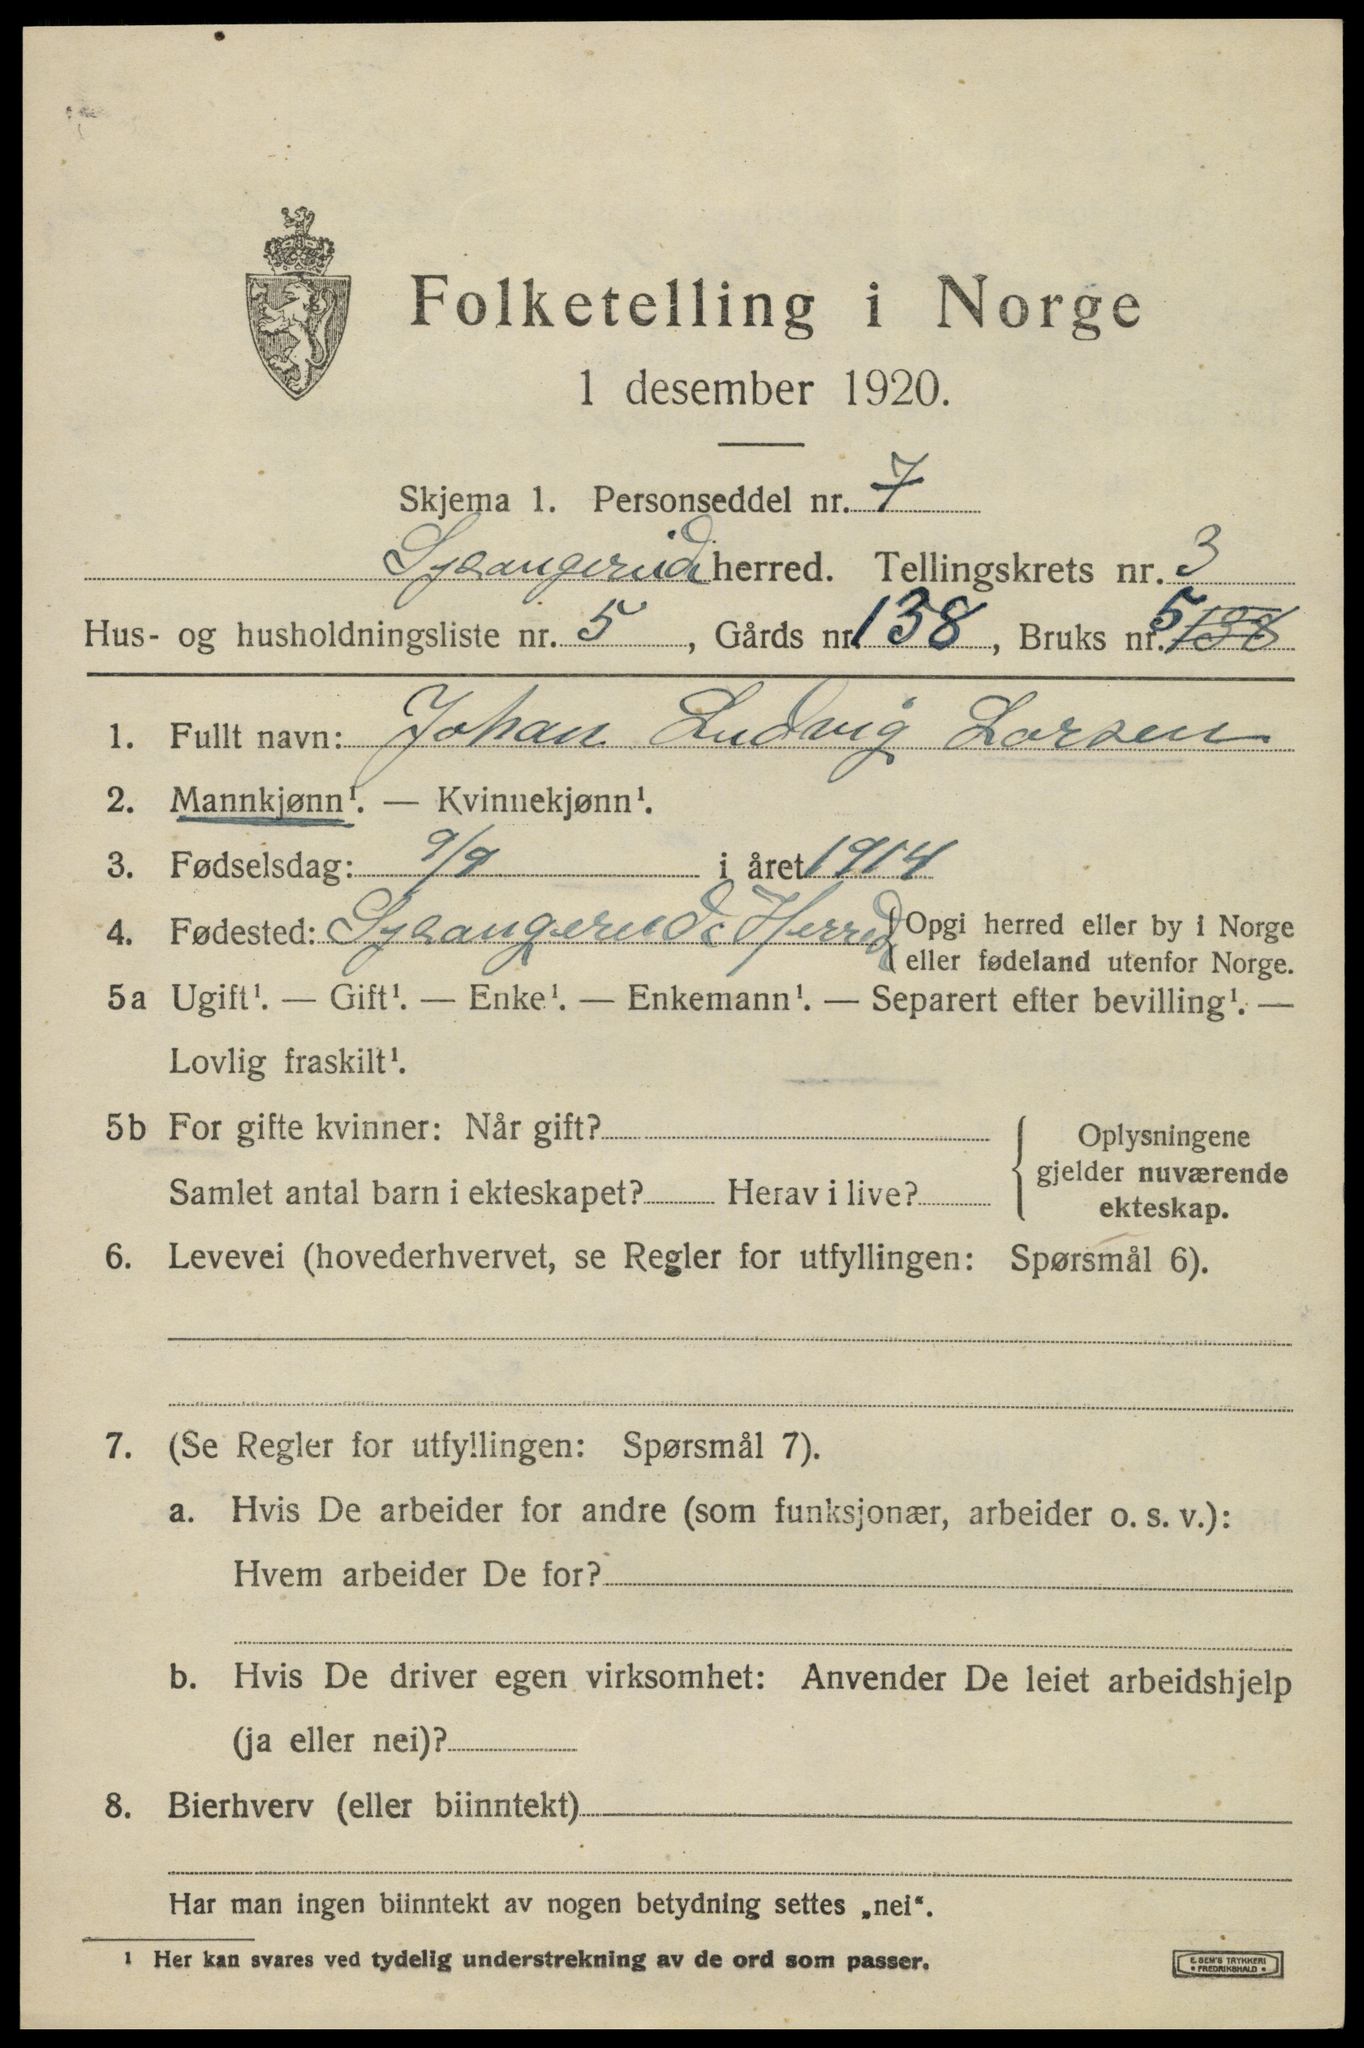 Folketelling i Norge
1 desember 1920.
Skjema 1. Personseddel nr. 7
herred. Tellingskrets nr. 3
Hus- og husholdningsliste nr. 5, Gårds nr. 138, Bruks nr. 5 138
1. Fullt navn: Johan Ludvig Larsen
2. Mannkjønn¹. — Kvinnekjønn¹.
3. Fødselsdag: 9/9 i året 1914
4. Fødested: Herred {Opgi herred eller by i Norge
eller fødeland utenfor Norge.
5a Ugift¹. — Gift¹. — Enke¹. — Enkemann¹. — Separert efter bevilling¹. —
Lovlig fraskilt¹.
5b For gifte kvinner: Når gift?
Samlet antal barn i ekteskapet? Herav i live?
Oplysningene
gjelder nuværende
ekteskap.
6. Levevei (hovederhvervet, se Regler for utfyllingen: Spørsmål 6).
7. (Se Regler for utfyllingen: Spørsmål 7).
a. Hvis De arbeider for andre (som funksjonær, arbeider o. s. v.):
Hvem arbeider De for?
b. Hvis De driver egen virksomhet: Anvender De leiet arbeidshjelp
(ja eller nei)?
8. Bierhverv (eller biinntekt)
Har man ingen biinntekt av nogen betydning settes „nei“.
1 Her kan svares ved tydelig understrekning av de ord som passer.
E. SEM'S TRYKKERI
• FREDRIKSHALD •